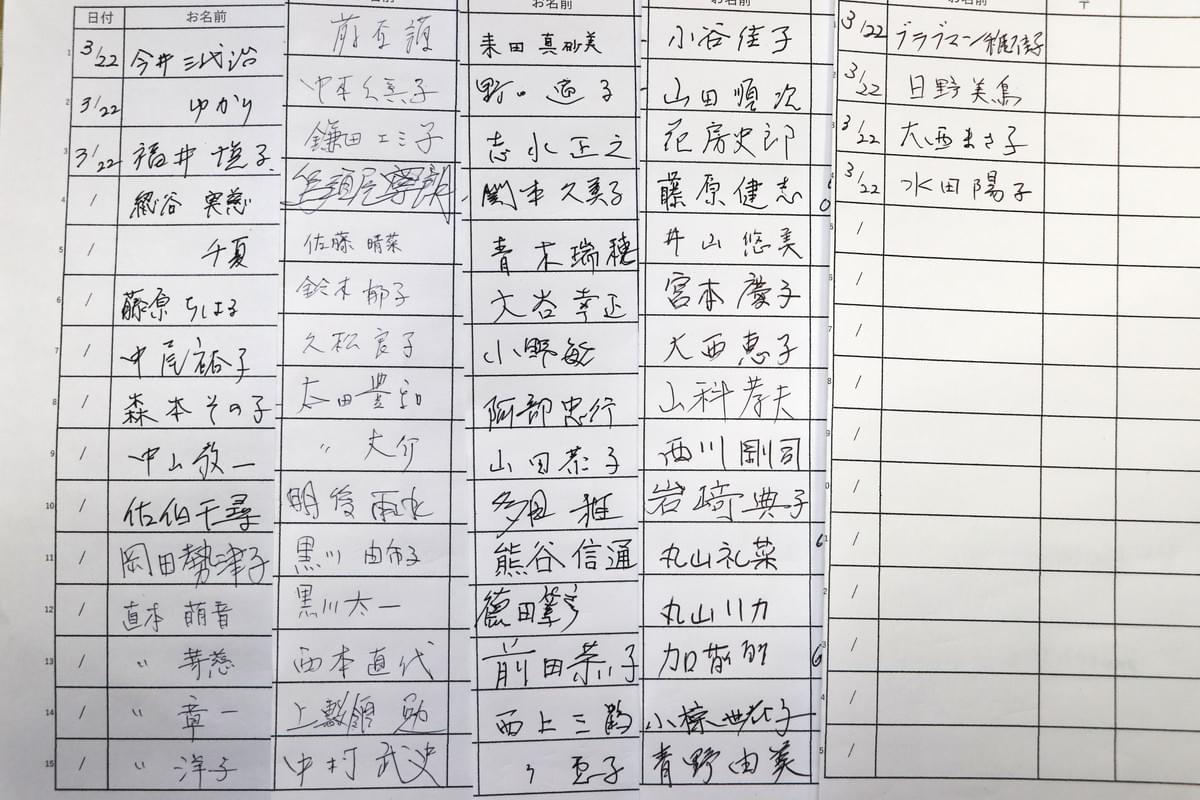 日付 お名前
1 3/22 今井三代治
2 3/22 ゆかり
3 3/22 福井 子
4 / 谷 実慈
5 / 千夏
6 / 藤原ちはる
7 / 中尾裕子
8 / 森本その子
9 / 中山敬一
10 / 佐伯千尋
11 / 岡田勢津子
12 / 直本 萌音
13 / 〃 芽慈
14 / 〃 章一
15 / 〃 洋子
お名前
護
中本久美子
鎌田エミ子
佐藤 晴菜
鈴木郁子
久松良子
太田豊和
〃 丈介
明後雨水
黒川 由布子
黒川太一
西本直代
上敷領 勉
中村武史
お名前
来田真砂美
野口 子
志水正之
関本久美子
青木瑞穂
大谷幸正
小野敏
阿部忠行
山田恭子
多田 雅
熊谷信通
徳田
前田菜々子
西上三鶴
〃 恵子
お名前
小谷佳子
山田順次
花房史郎
藤原健志
井山悠美
宮本慶子
大西恵子
山科孝夫
西川剛司
岩崎典子
丸山礼菜
丸山リカ
加
小 世在子
青野由美
お名前 〒
3/22 ブラブマン雅子
3/22 日野美鳥
3/22 大西まさ子
3/22 水田陽子
/
/
/
/
/
/
/
/
/
/
/